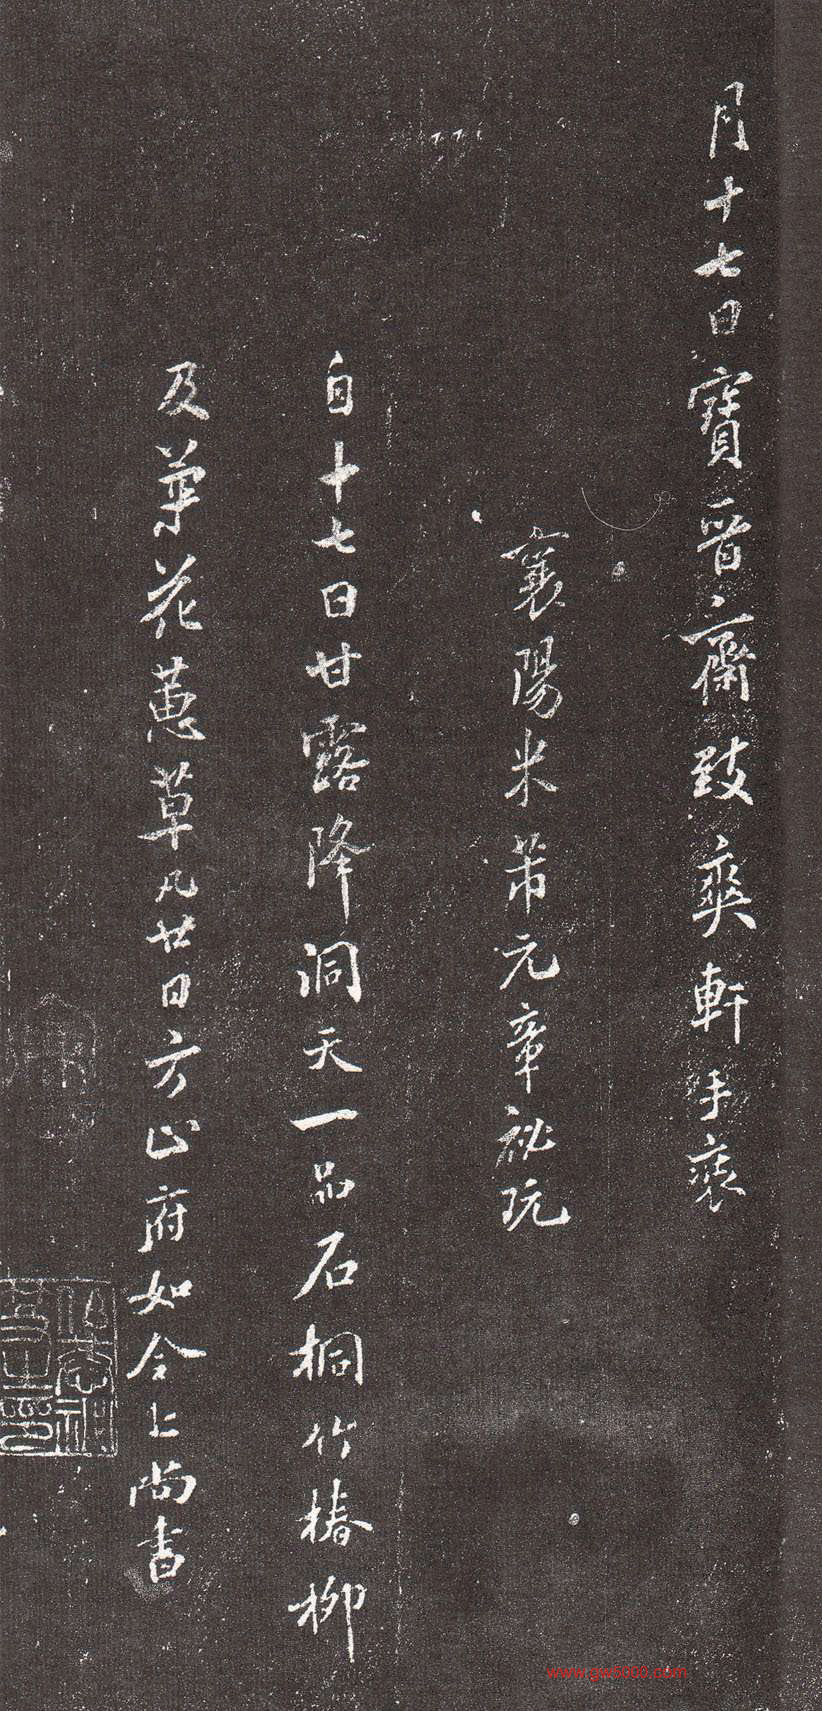 月十七日寳晋齋致爽軒手裝
襄陽米芾元章祕玩
自十七日甘露降洞天一品石桐竹椿柳
及草花蕙草凡廿日方止府如今上尚書
www.gw5000.com